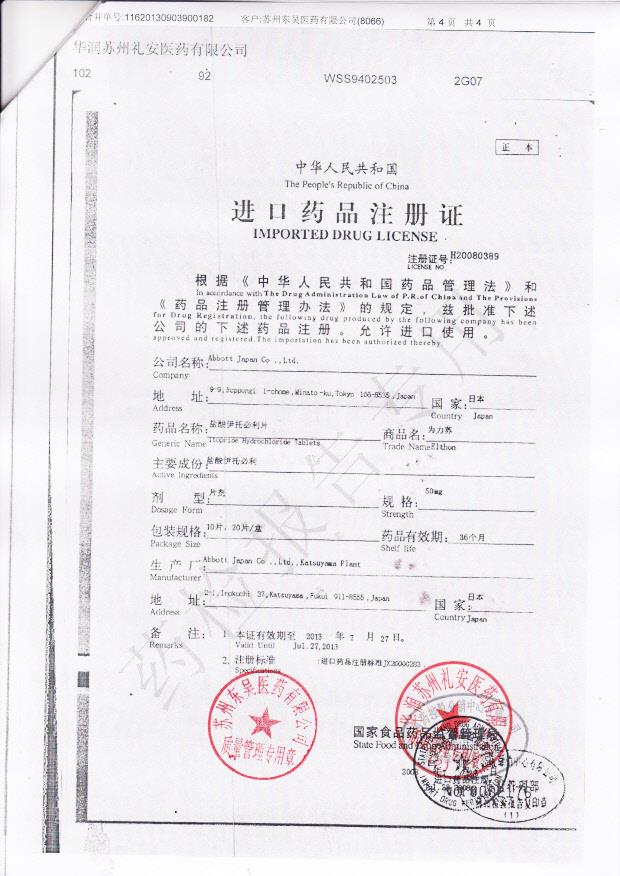 合并单号:11620130903900182 客户:苏州东吴医药有限公司(8066) 第 4 页 共 4 页
华润苏州礼安医药有限公司
102 92 WSS9402503 2G07
正 本
中华人民共和国
The People's Republic of China
进口药品注册证
IMPORTED DRUG LICENSE
注册证号:H20080389
LICENSE NO.
根据《中华人民共和国药品管理法》和
In accordance with The Drug Administration Law of P.R.of China and The Provisions
《药品注册管理办法》的规定，兹批准下述
for Drug Registration, the following drug produced by the following company has been
公司的下述药品注册。允许进口使用。
approved and registered.The importation has been authorized thereby.
公司名称: Abbott Japan Co .,Ltd.
Company
地 址: 9-9,Roppongi 1-chome,Minato-ku,Tokyo 106-8535,Japan 国 家: 日本
Address Country Japan
药品名称: 盐酸伊托必利片 商品名: 为力苏
Generic Name Itopride Hydrochloride Tablets Trade Name Elthon
主要成份: 盐酸伊托必利
Active Ingredients
剂 型: 片剂 规 格: 50mg
Dosage Form Strength
包装规格: 10片, 20片/盒 药品有效期: 36个月
Package Size Shelf life
生 产 厂: Abbott Japan Co .,Ltd.,Katsuyama Plant
Manufacturer
地 址: 2-1,Inokuchi 37,Katsuyama,Fukui 911-8555,Japan 国 家: 日本
Address Country Japan
备 注: 1. 本证有效期至 2013 年 7 月 27 日。
Remarks Valid Until Jul.27,2013
2. 注册标准 :进口药品注册标准JX20000283
Specifications
药检报告专用
苏州东吴医药有限公司
质量管理专用章
华润苏州礼安医药有限公司
国家食品药品监督管理局
State Food and Drug Administration
2008